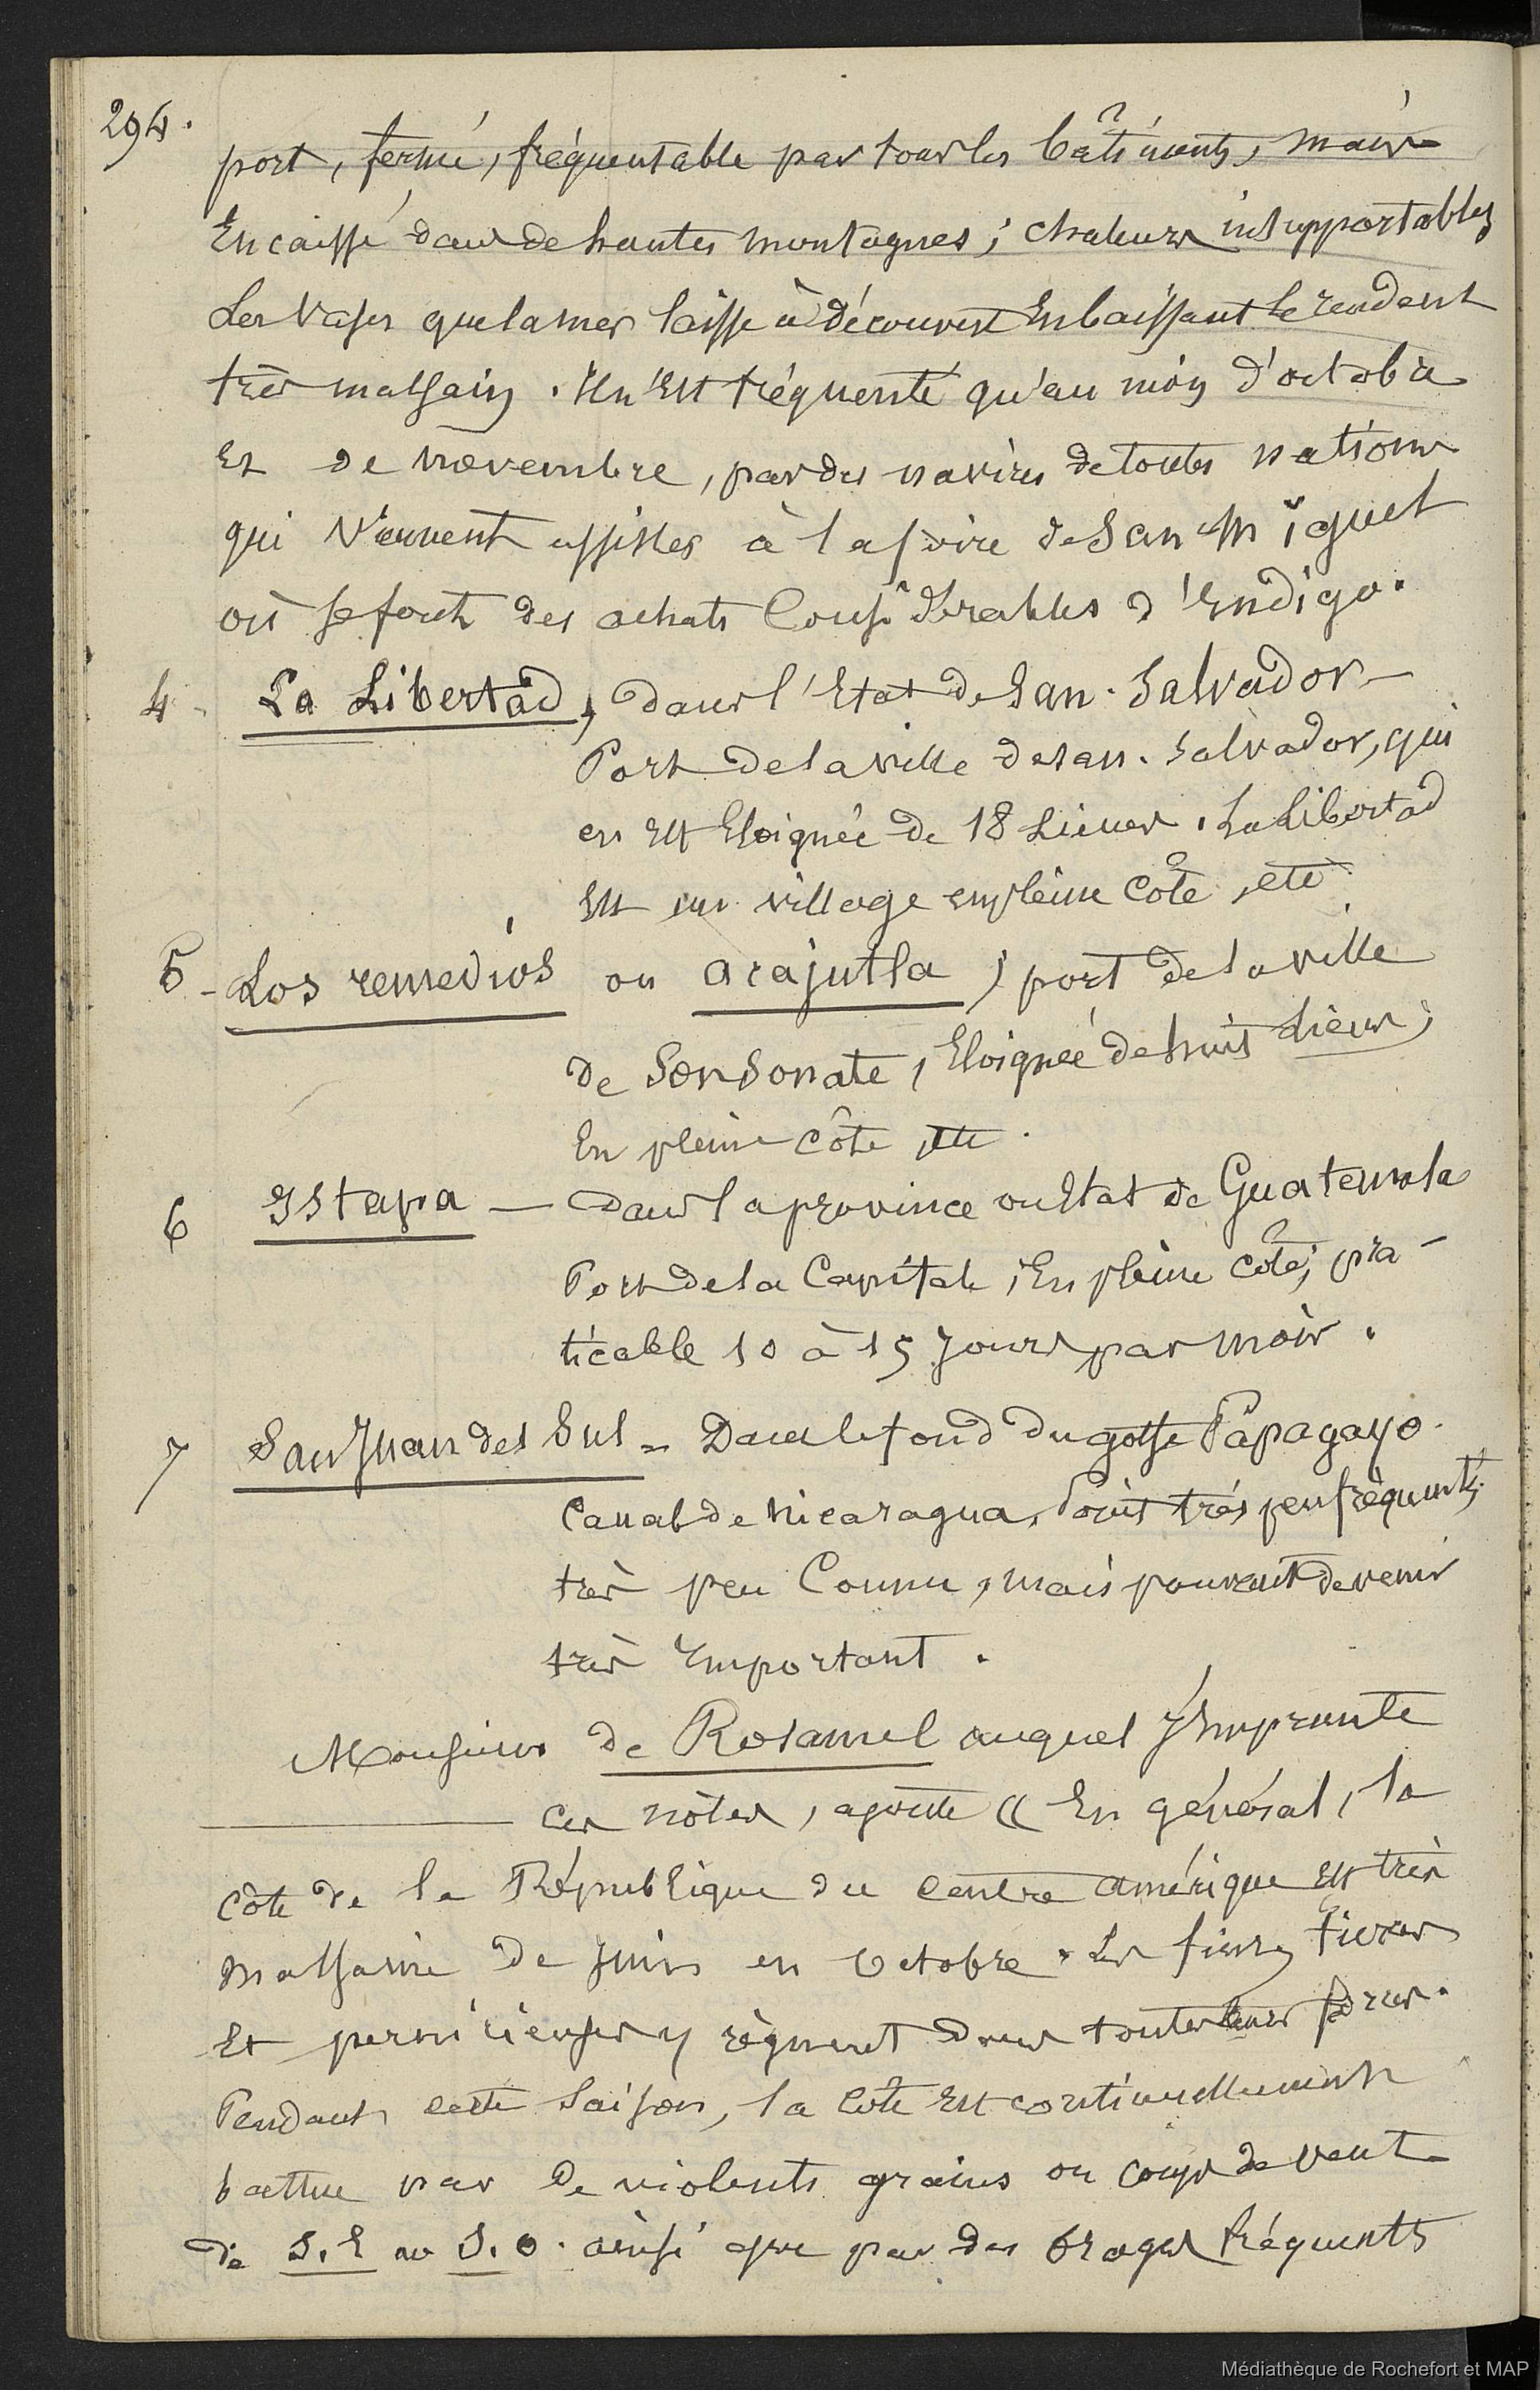 294.
port, fermé, fréquentable par tous les bâtiments, mais
Encaissé dans de hautes montagnes ; chaleurs insupportables
Les Vases que la mer laisse à découvert En baissant le rendent
très malsain. Il n'Est fréquenté qu'au mois d'octobre
Et de novembre, par des navires de toutes nations
qui Viennent assister à la foire de San Miguel
où se font des achats Considérables d'Endigo.
4 - La Libertad, dans l'Etat de San. Salvador -
Port de la ville de san. Salvador, qui
en Est Eloignée de 18 Lieues. La Libertad
Est un village en pleine Côte, etc
5 - Los remedios ou acajutla, port de la ville
de Sonsonate, Eloignée de huit Lieues,
En pleine côte, etc.
6 Istapa — Dans la province ou Etat de Guatemala
Port de la Capitale, En pleine côte, pra-
ticable 10 à 15 Jours par mois.
7 San Juan del Sul = Dans le fond du golfe Papagayo.
Canal de Nicaragua. Point très peu fréquenté,
très peu Connu, mais pouvant devenir
très Important.
Monsieur de Rosamel auquel J'Emprunte
ces notes, ajoute « En général, la
côte de la République du centre amérique Est très
malsaine de Juin en Octobre. Les fièvres
Et pernicieuses y règnent dans toutes leurs forces.
Pendant cette Saison, la Côte Est continuellement
battue par de violents grains ou coups de vent
de S.E au S.O. ainsi que par des Orages fréquents
Médiathèque de Rochefort et MAP